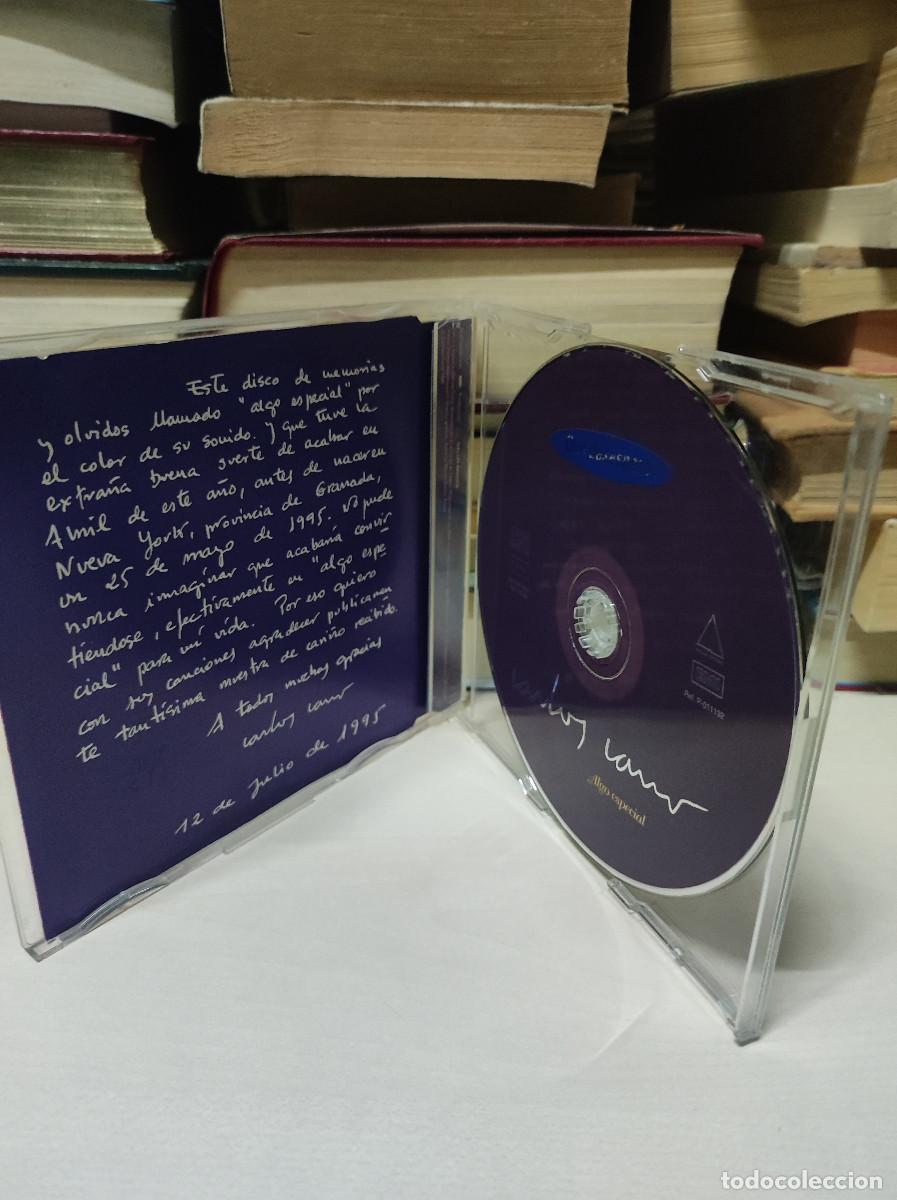 Este disco de memorias
y olvidos llamado "algo especial" por
el color de su sonido. Y que tuve la
extraña buena suerte de acabar en
Abril de este año, antes de nacer en
Nueva York, provincia de Granada,
un 25 de mayo de 1995. No pude
nunca imaginar que acabaría convir
tiéndose, efectivamente en "algo espe-
cial" para mi vida. Por eso quiero
con sus canciones agradecer publicamen
te tantísima muestra de cariño recibido.
A todos muchas gracias
Carlos Cano
12 de Julio de 1995
Carlos Cano
Algo especial
Ref. P-011192
todocoleccion